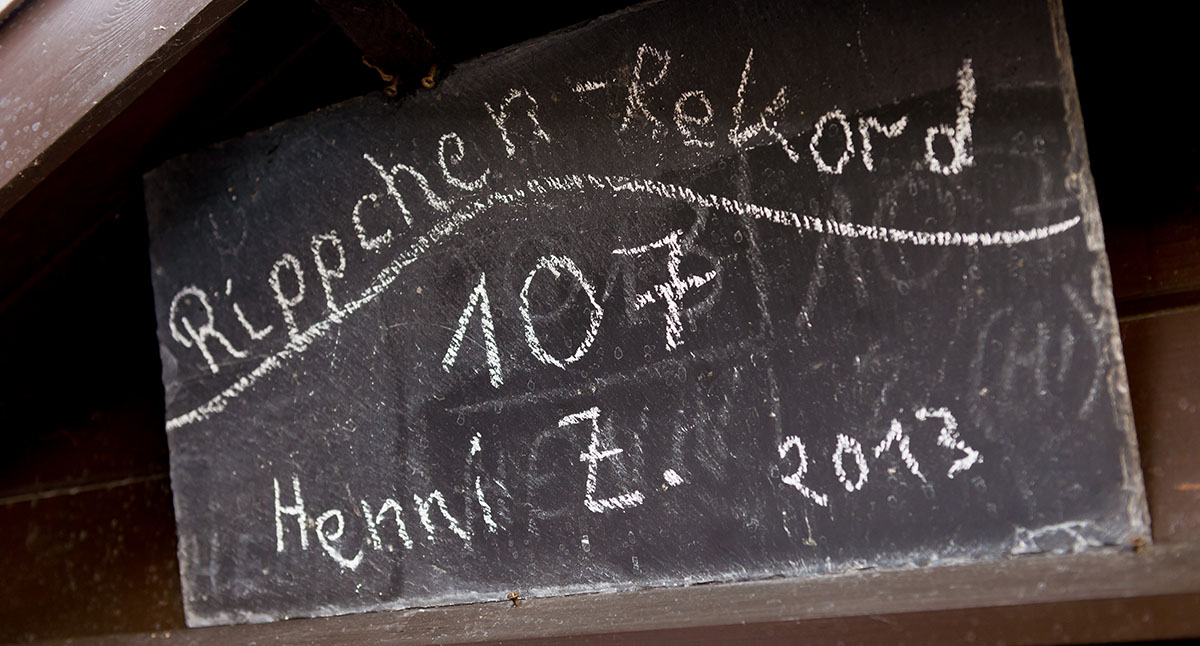 Rippchen-Rekord
107
Henni Z. 2013